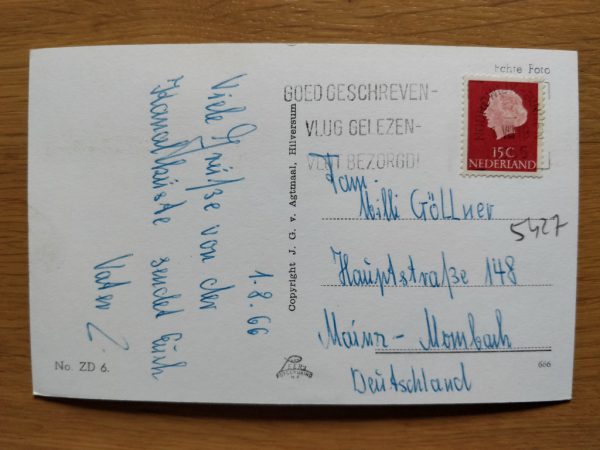 Viele Grüße von der
Kanalküste sendet Euch
Vater
1.8.66
No. ZD 6.
Copyright J. G. v. Agtmaal, Hilversum
Echte Foto
GOED GESCHREVEN-
VLUG GELEZEN-
VLUG BEZORGD!
15C
NEDERLAND
Fam.
Willi GöLLner
5427
Hauptstraße 148
Mainz-Mombach
Deutschland
666